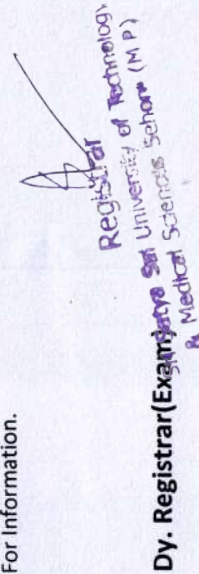 For Information.
Registrar
Sri Satya Sai University of Technology
& Medical Sciences Sehore (M P)
Dy. Registrar(Exam)